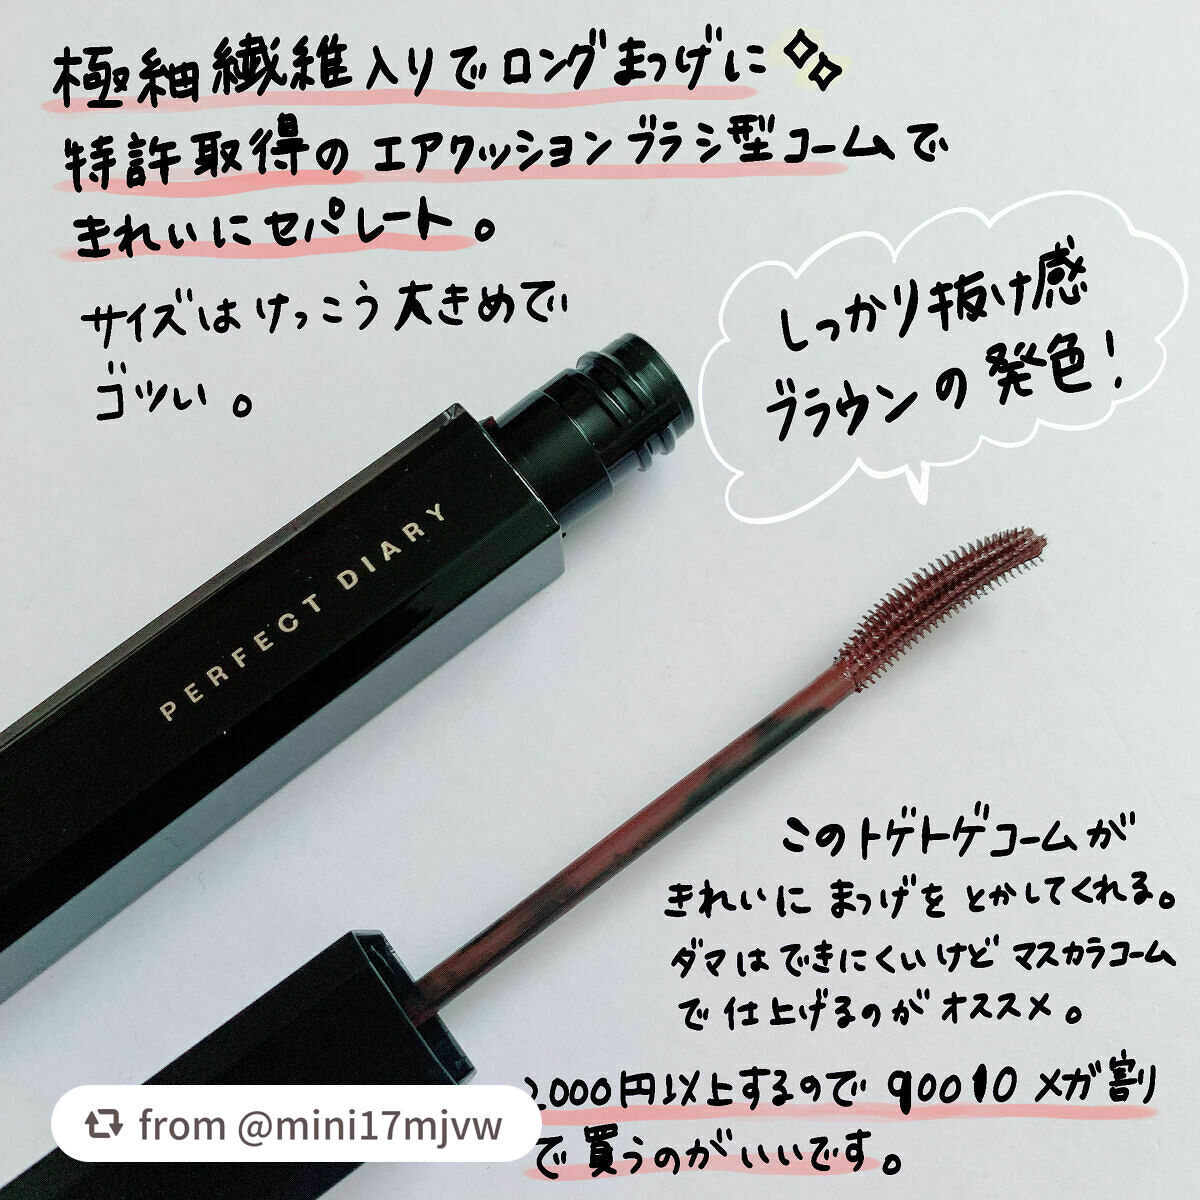 極細繊維入りでロングまつげに
特許取得のエアクッションブラシ型コームで
きれいにセパレート。
サイズはけっこう大きめで
ゴツい。
しっかり抜け感
ブラウンの発色！
PERFECT DIARY
このトゲトゲコームが
きれいにまつげをとかしてくれる。
ダマはできにくいけどマスカラコーム
で仕上げるのがオススメ。
2,000円以上するのでqoo10メガ割
で買うのがいいです。
from @mini17mjvw